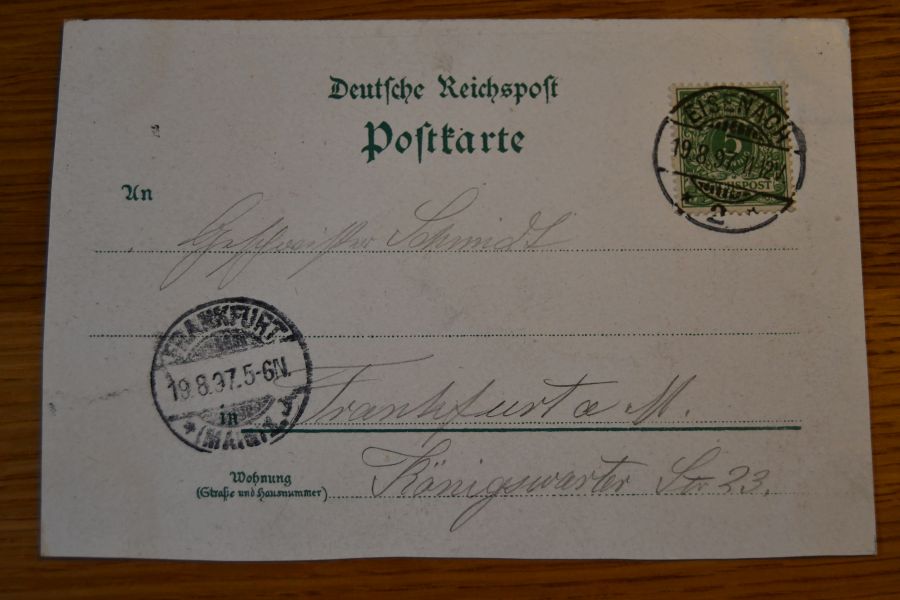 Deutsche Reichspost
Postkarte
EISENACH
19.8.97.
2
5
REICHSPOST
An
Geschwister Schmidt
FRANKFURT
19.8.97.5-6N.
(MAIN) 1.
in Frankfurt a M.
Wohnung
(Straße und Hausnummer)
Königswarter Str 23.